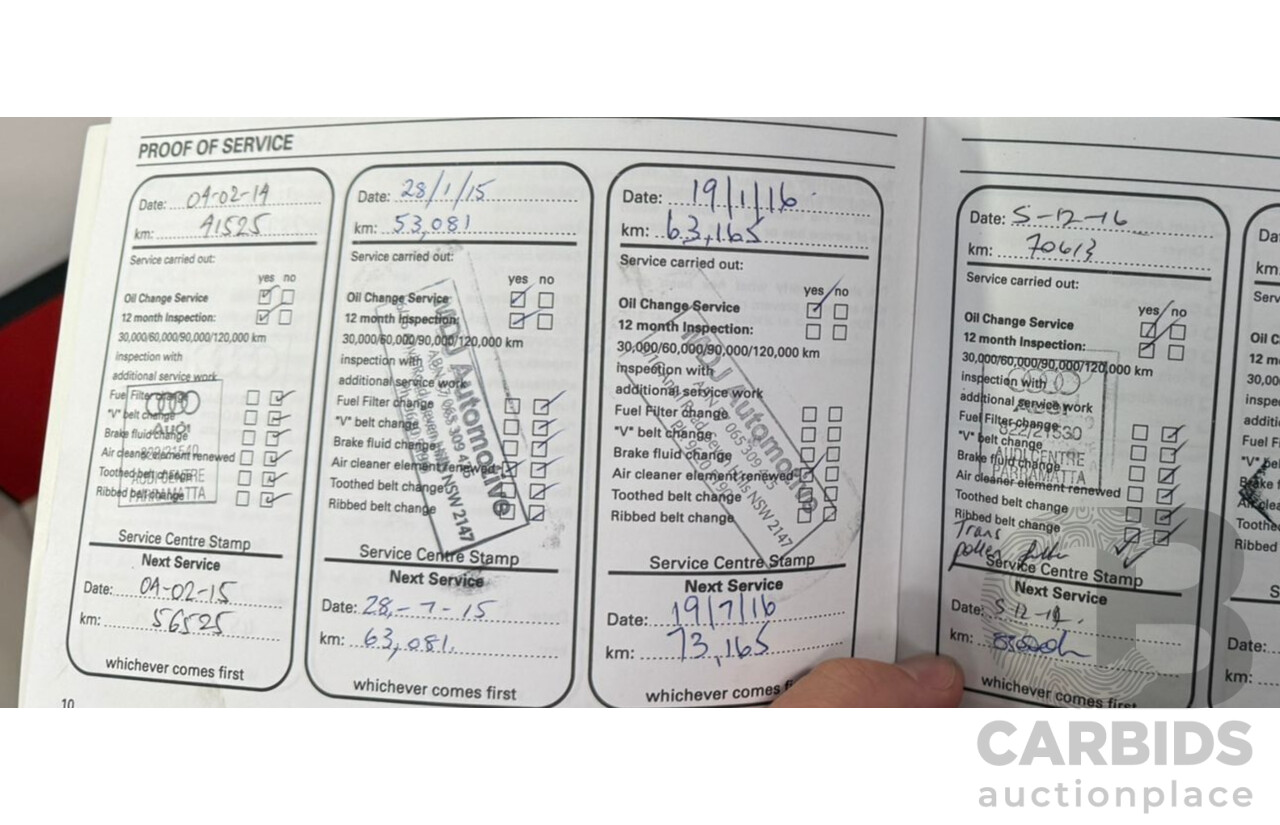 PROOF OF SERVICE
Date: 04-02-14
km: 41525
Service carried out:
yes no
Oil Change Service
12 month Inspection:
30,000/60,000/90,000/120,000 km
inspection with
additional service work
Fuel Filter change
"V" belt change
Brake fluid change
Air cleaner element renewed
Toothed belt change
Ribbed belt change
Audi
822/21540
AUDI CENTRE
PARRAMATTA
Service Centre Stamp
Next Service
Date: 04-02-15
km: 56525
whichever comes first
10
Date: 28/1/15
km: 53,081
Service carried out:
yes no
Oil Change Service
12 month Inspection:
30,000/60,000/90,000/120,000 km
inspection with
additional service work
Fuel Filter change
"V" belt change
Brake fluid change
Air cleaner element renewed
Toothed belt change
Ribbed belt change
MDJ Automotive
NSW 2147
Service Centre Stamp
Next Service
Date: 28-7-15
km: 63,081.
whichever comes first
Date: 19/1/16
km: 63,165
Service carried out:
yes no
Oil Change Service
12 month Inspection:
30,000/60,000/90,000/120,000 km
inspection with
additional service work
Fuel Filter change
"V" belt change
Brake fluid change
Air cleaner element renewed
Toothed belt change
Ribbed belt change
MDJ Automotive
NSW 2147
Service Centre Stamp
Next Service
Date: 19/7/16
km: 73,165
whichever comes f
Date: 5-12-16
km: 70613
Service carried out:
yes no
Oil Change Service
12 month Inspection:
30,000/60,000/90,000/120,000 km
inspection with
additional service work
Fuel Filter change
"V" belt change
Brake fluid change
Air cleaner element renewed
Toothed belt change
Ribbed belt change
822/21530
AUDI CENTRE
PARRAMATTA
Trans
pollen
Service Centre Stamp
Next Service
Date:
km:
whichever comes first
km:
12 m
30,00
inspe
additi
Fuel F
"V" bel
Brake f
Toothe
Ribbed
Date:
km:
CARBIDS
auctionplace